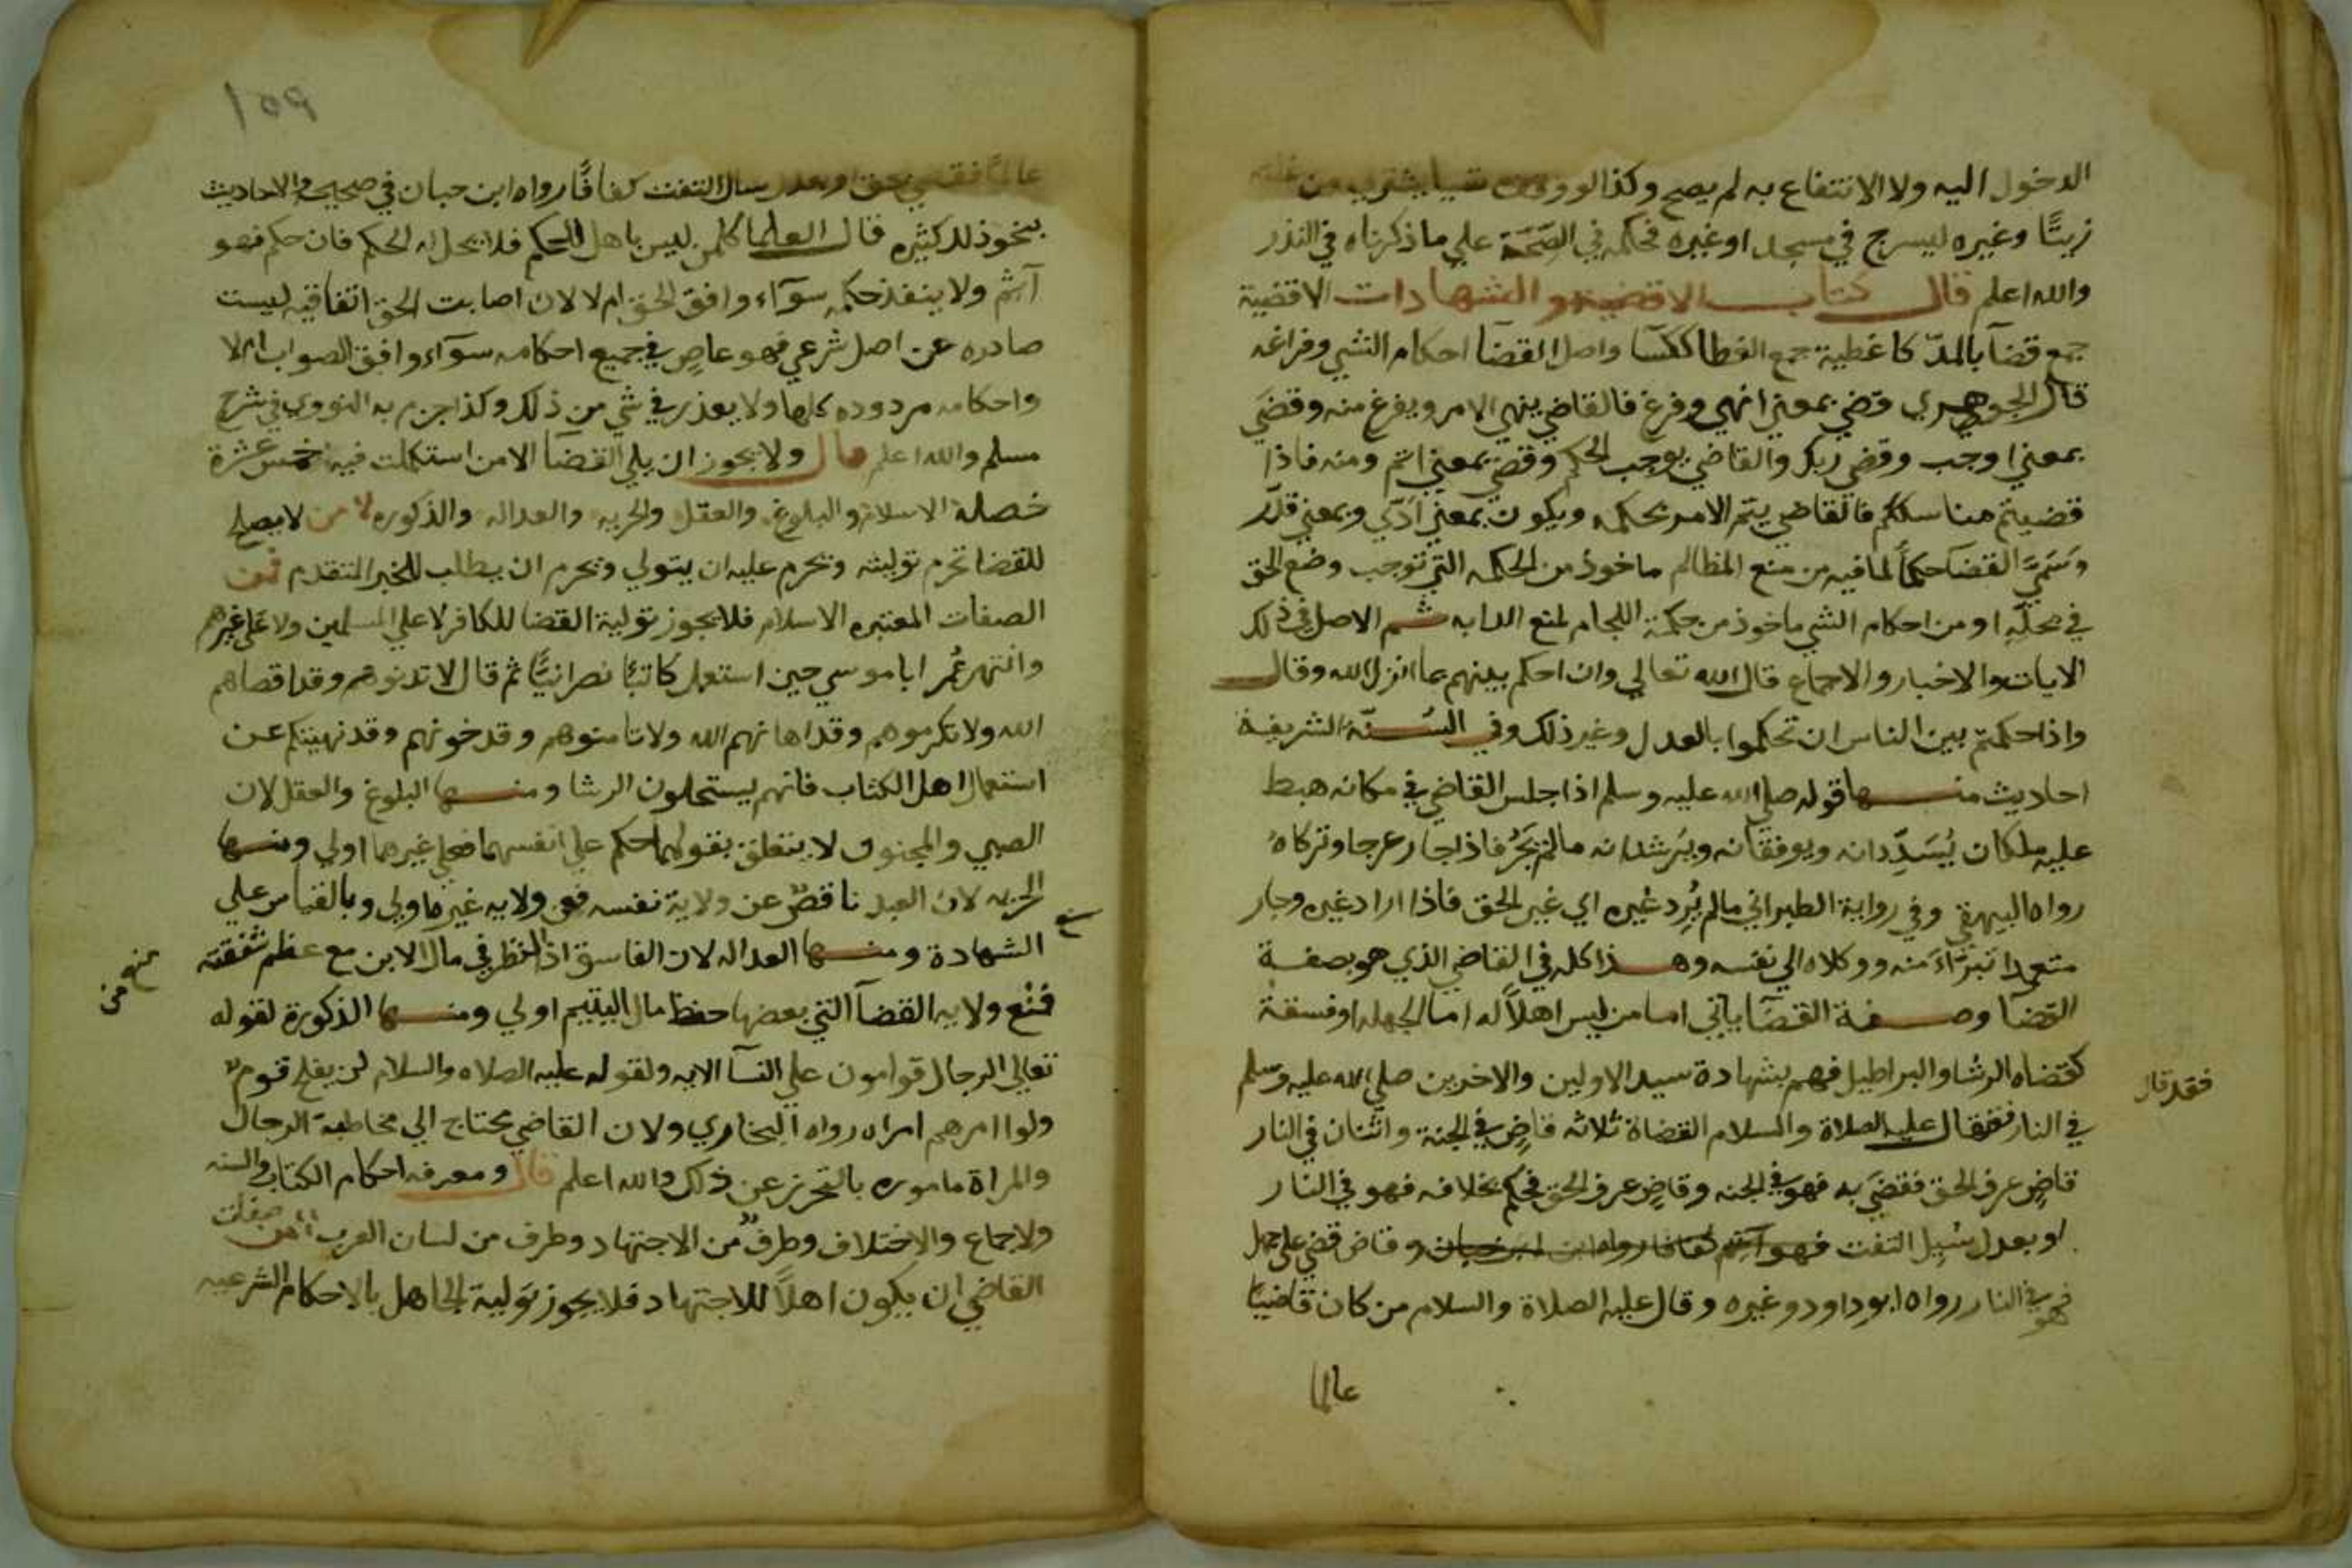 الدخول اليه ولا الانتفاع به لم يصح وكذا لو وقف شيا يشتري من غلته
زيتًا وغيره ليسرج في مسجد او غيره فحكمه في الصحة علي ما ذكرناه في النذر
والله اعلم قال كتاب الاقضية والشهادات الاقضية
جمع قضا بالمدّ كاغطية جمع الغطا ككسا واصل القضا احكام الشي وفراغه
قال الجوهري قضي بمعني انهي وفرغ فالقاضي ينهي الامر ويفرغ منه وقضي
بمعني اوجب وقضي ربك والقاضي يوجب الحكم وقضي بمعني اتم ومنه فاذا
قضيتم مناسككم فالقاضي يتم الامر بحكمه ويكون بمعني ادّي وبمعني قدّر
وسمي القضا حكما لما فيه من منع المظالم ماخوذ من الحكمه التي توجب وضع الحق
في محله او من احكام الشي ماخوذ من حكمة اللجام لمنع الدابه ثم الاصل في ذلك
الايات والاخبار والاجماع قال الله تعالي وان احكم بينهم بما انزل الله وقال
واذا حكمتم بين الناس ان تحكموا بالعدل وغير ذلك وفي السنة الشريفة
احاديث منها قوله صلي الله عليه وسلم اذا جلس القاضي في مكانه هبط
عليه ملكان يُسَدِّدانه ويوفقانه ويرشدانه ما لم يَجُر فاذا جار عرجا وتركاه
رواه البيهقي وفي رواية الطبراني ما لم يُرِد غيره اي غير الحق فاذا اراد غيره وجار
متعمدا تبرّاء منه ووكلاه الي نفسه وهذا كله في القاضي الذي هو بصفة
القضآ وصفة القضآ ياتي اما من ليس اهلاً له اما الجهله او فسقة
كقضاه الرشا والبراطيل فهم بشهادة سيد الاولين والاخرين صلي الله عليه وسلم
فقد قال
في النار فقال عليه الصلاة والسلام القضاة ثلاثه قاضٍ في الجنة واثنان في النار
قاضٍ عرف الحق فقضي به فهو في الجنه وقاضٍ عرف الحق فحكم بخلافه فهو في النار
او بعدل سُيِل التفت فهو آثم كفافا رواه ابن حبان وقاض قضي علي جهل
فهو في النار رواه ابو داود وغيره وقال عليه الصلاة والسلام من كان قاضيًا
عالما
١٥٩
عالمًا فقضي بحق او عدل سال التفت كفافًا رواه ابن حبان في صحيحه والاحاديث
بنحو ذلك كثيره قال العلما كل من ليس باهل للحكم فلا يحل له الحكم فان حكم فهو
آثم ولا ينفذ حكمه سوآء وافق الحق ام لا لان اصابت الحق اتفاقيه ليست
صادره عن اصل شرعي فهو عاصٍ في جميع احكامه سوآء وافق الصواب ام لا
واحكامه مردوده كلها ولا يعذر في شي من ذلك وكذا جزم به النووي في شرح
مسلم والله اعلم قال ولا يجوز ان يلي القضآ الا من استكملت فيه خمس عشرة
خصلة الاسلام والبلوغ والعقل والحريه والعداله والذكوره لا من لا يصلح
للقضا تحرم توليته ويحرم عليه ان يتولي ويحرم ان يطلب للخبر المتقدم فمن
الصفات المعتبره الاسلام فلا يجوز تولية القضا للكافر لا علي المسلمين ولا علي غيرهم
وانتهر عُمر ابا موسي حين استعمل كاتبًا نصرانيًّا ثم قال لا تدنوهم وقد اقصاهم
الله ولا تكرموهم وقد اهانهم الله ولا تامنوهم وقد خونهم وقد نهيتكم عن
استعمال اهل الكتاب فانهم يستحلون الرشا ومنها البلوغ والعقل لان
الصبي والمجنون لا يتعلق بقولهما حكم علي انفسهما فعلي غيرهما اولي ومنها
الحريه لان العبد ناقصٌ عن ولاية نفسه فعن ولايه غيره اولي وبالقياس علي
الشهادة ومنها العداله لان الفاسق اذا لم ينظر في مال الابن مع عظم شفقته
فمنع ولايه القضآ التي بعضها حفظ مال اليتيم اولي ومنها الذكورة لقوله
تعالي الرجال قوامون علي النسآ الايه ولقوله عليه الصلاه والسلام لن يفلح قومٌ
ولوا امرهم امراه رواه البخاري ولان القاضي يحتاج الي مخاطبة الرجال
والمراة ماموره بالتحرز عن ذلك والله اعلم قال ومعرفه احكام الكتاب والسنه
ولاجماع والاختلاف وطرفٌ من الاجتهاد وطرف من لسان العرب من صفات
القاضي ان يكون اهلاً للاجتهاد فلا يجوز تولية الجاهل بالاحكام الشرعيه